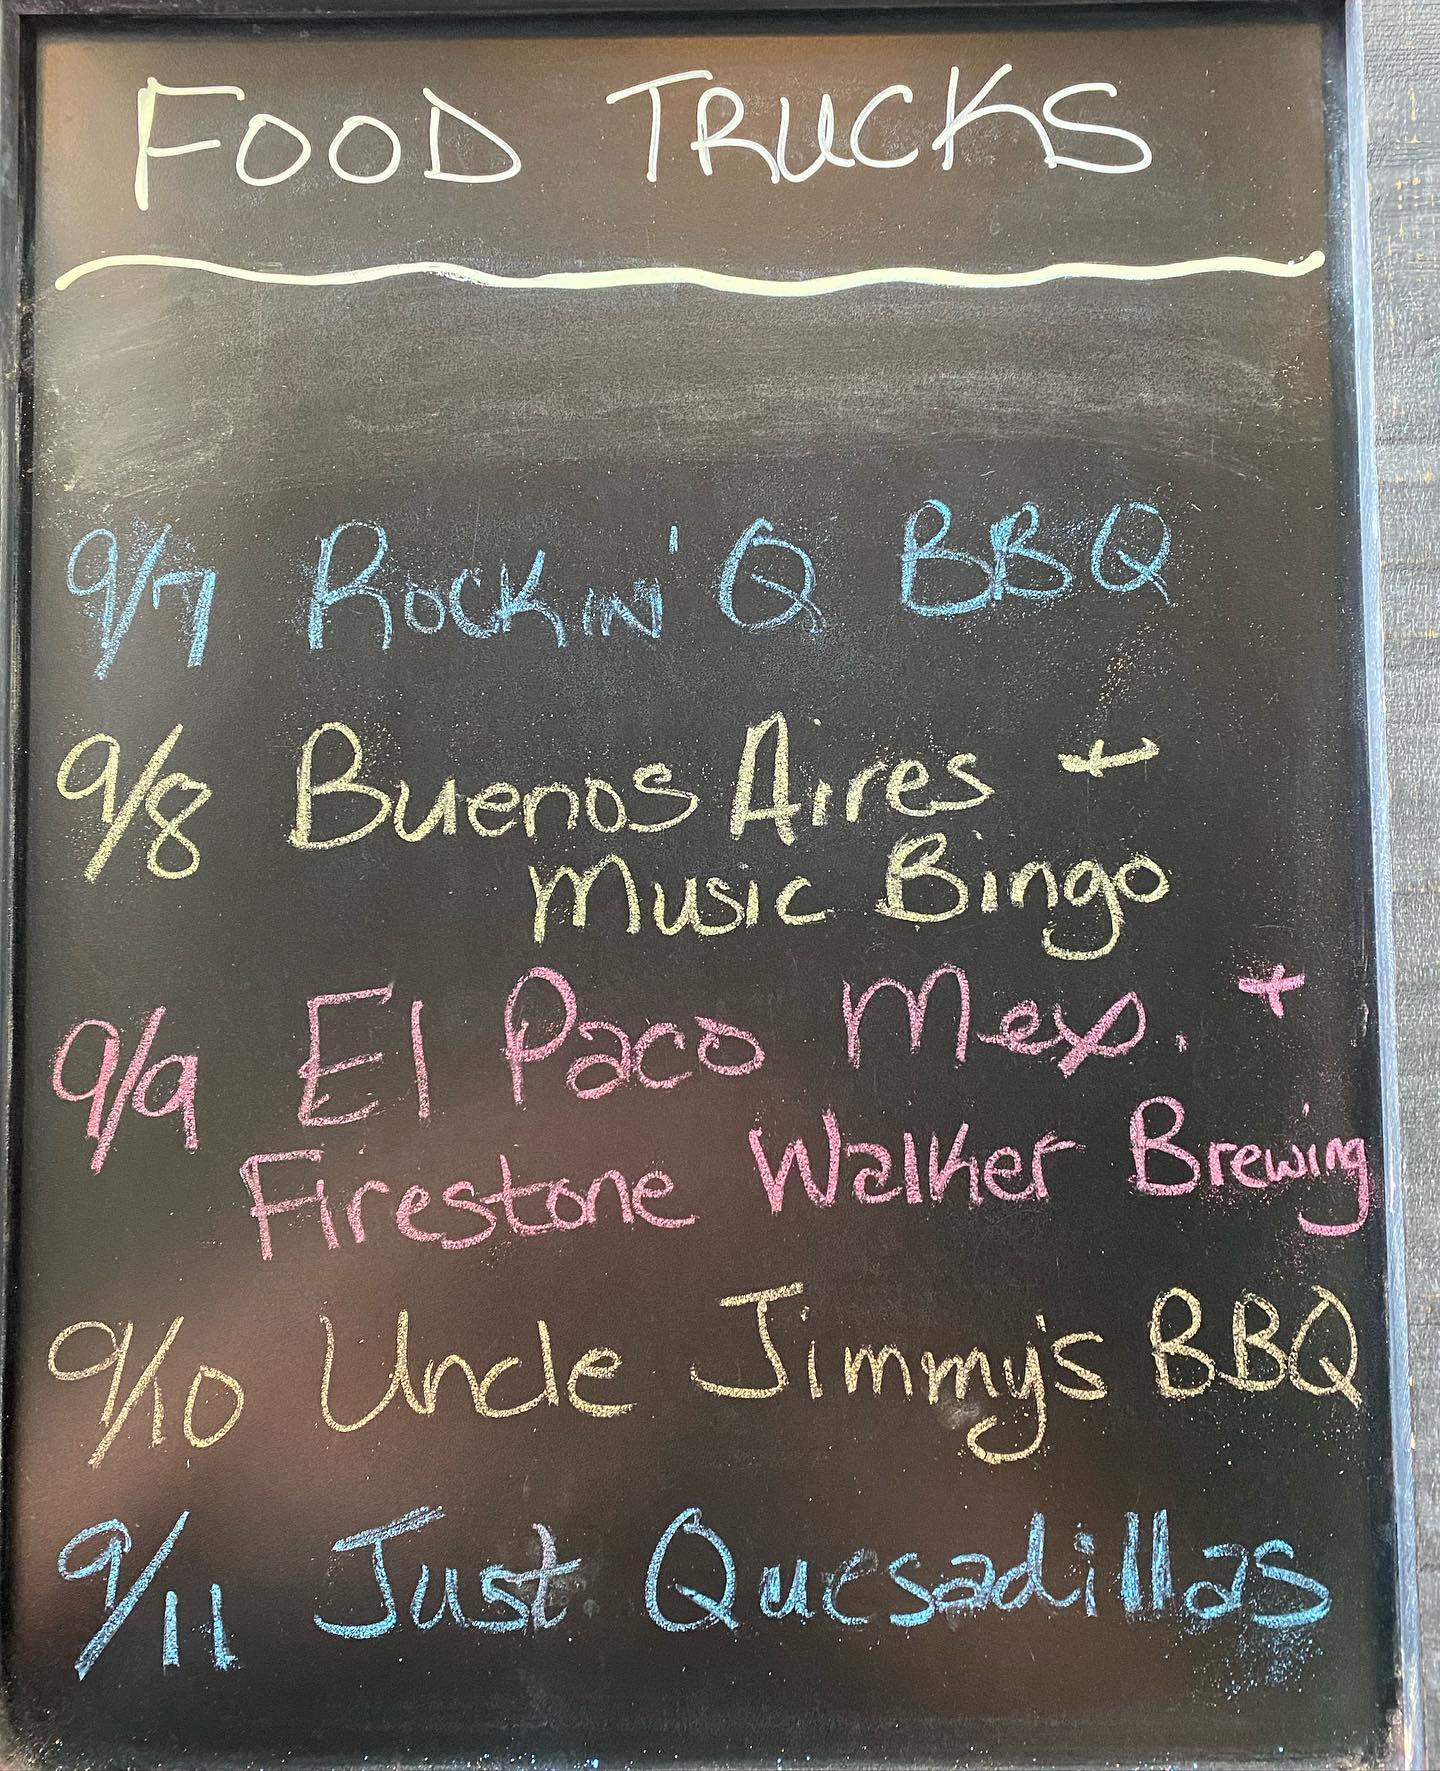 FOOD TRUCKS
9/7 ROCKIN' Q BBQ
9/8 Buenos Aires +
Music Bingo
9/9 El Paco Mex. +
Firestone Walker Brewing
9/10 Uncle Jimmy's BBQ
9/11 Just Quesadillas